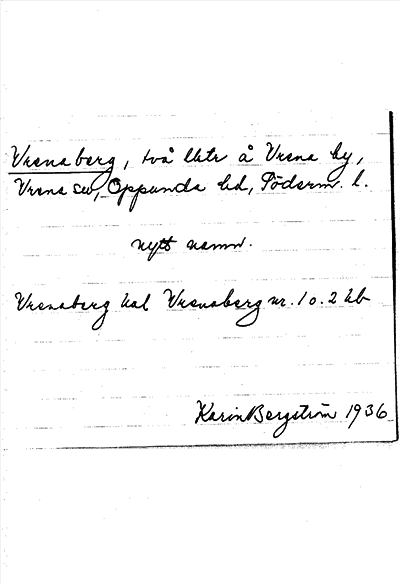 Vrenaberg, två lhtr å Vrena by,
Vrena sn, Oppunda hd, Söderm. l.
nytt namn.
Vrenaberg kal Vrenaberg nr. 1 o. 2 hb
Karin Bergström 1936